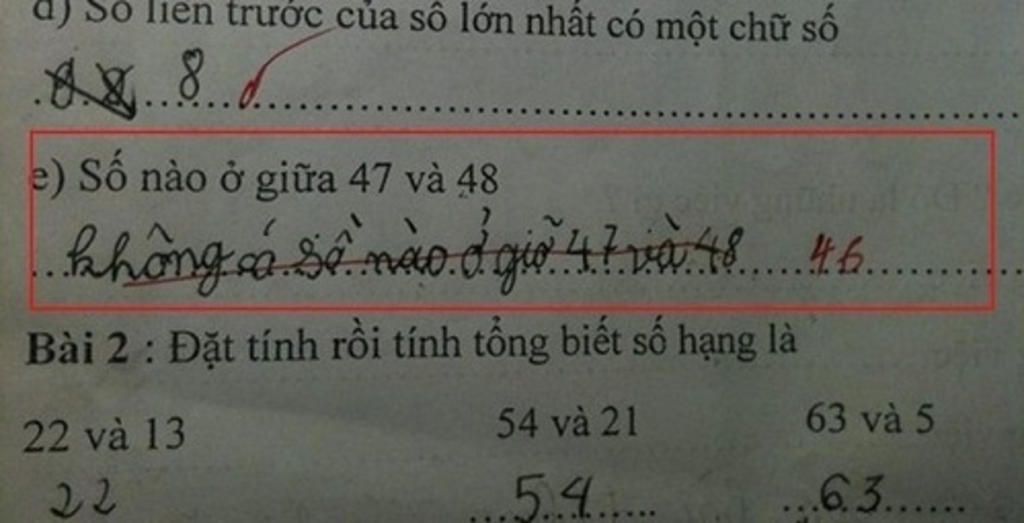 d) Số liền trước của số lớn nhất có một chữ số
8
e) Số nào ở giữa 47 và 48
không có số nào ở giữ 47 và 48 46
Bài 2 : Đặt tính rồi tính tổng biết số hạng là
22 và 13 54 và 21 63 và 5
22 54 63